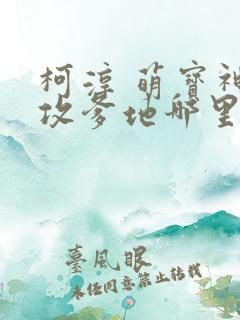 柯淳 萌寶神
攻爹地哪里
臺風眼
未经同意禁止转载